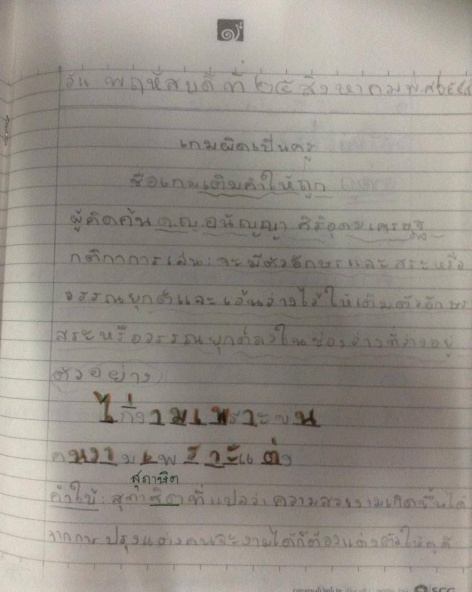 ๑
วัน พฤหัสบดี ที่ ๒๕ สิงหาคม พศ๒๕๕๔
เกมผิดเป็นครู
คือเกมเติมคำให้ถูก
ผู้คิดค้น ด.ญ.อนัญญา สิริอุดมเศรษฐ
กติกาการเล่น: จะมีตัวอักษรและสระหรือ
วรรณยุกต์และเว้นว่างไว้ให้เติมตัวอักษร
สระหรือวรรณยุกต์ลงในช่องว่างที่ว่างอยู่
ตัวอย่าง
ไก่งามเพราะขน
คนงามเพราะแต่ง
สุภาษิต
คำใบ้: สุภาษิตที่แปลว่า ความสวยงามเกิดขึ้นได้
จากการปรุงแต่งคนจะงามได้ก็ต้องแต่งตัวให้ดูดี
SCG